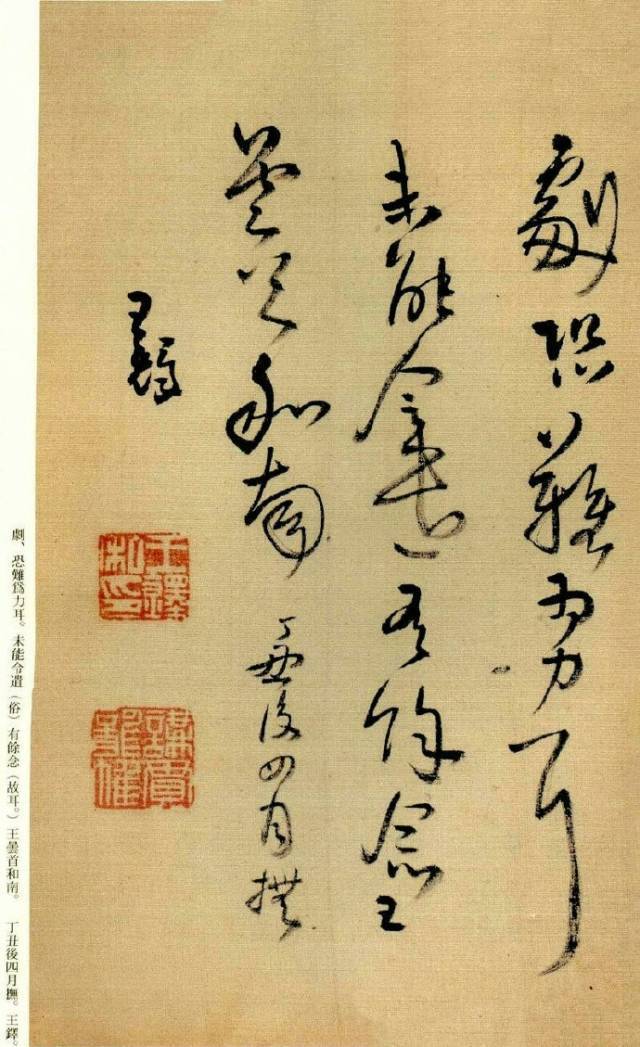 劇恐難為力耳
未能令遣有餘念王
曇首和南
丁丑後四月撫
王鐸
王鐸私印
劇、恐難爲力耳。未能令遣（俗）有餘念（故耳。）王曇首和南。　丁丑後四月撫。王鐸。